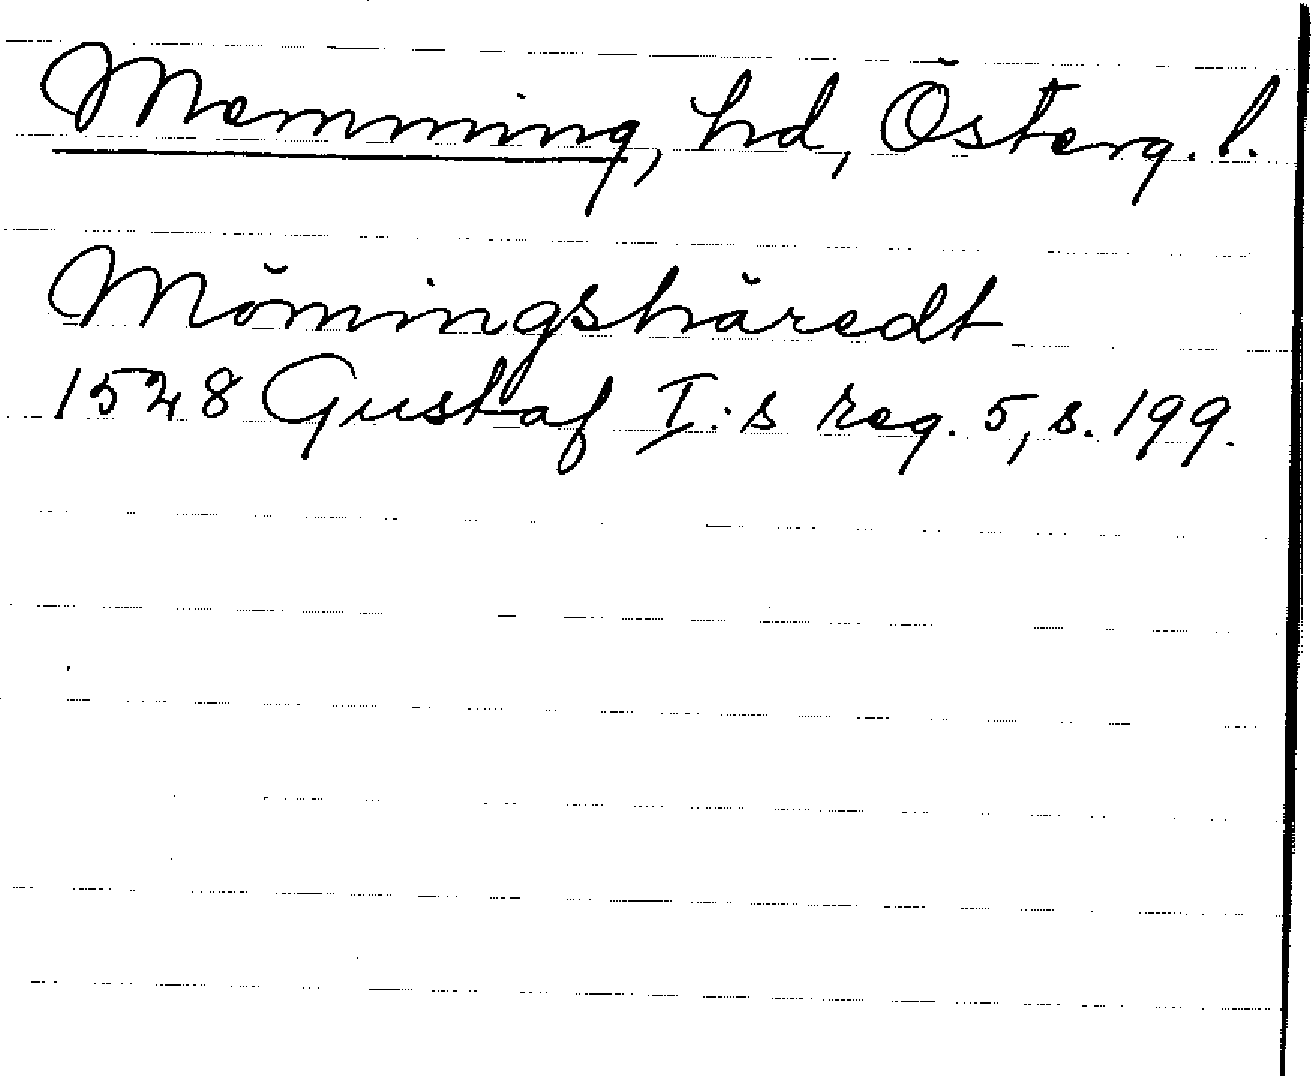 Memming, hd, Österg. l.
Mömingshäredt
1528 Gustaf I:s reg. 5, s. 199.